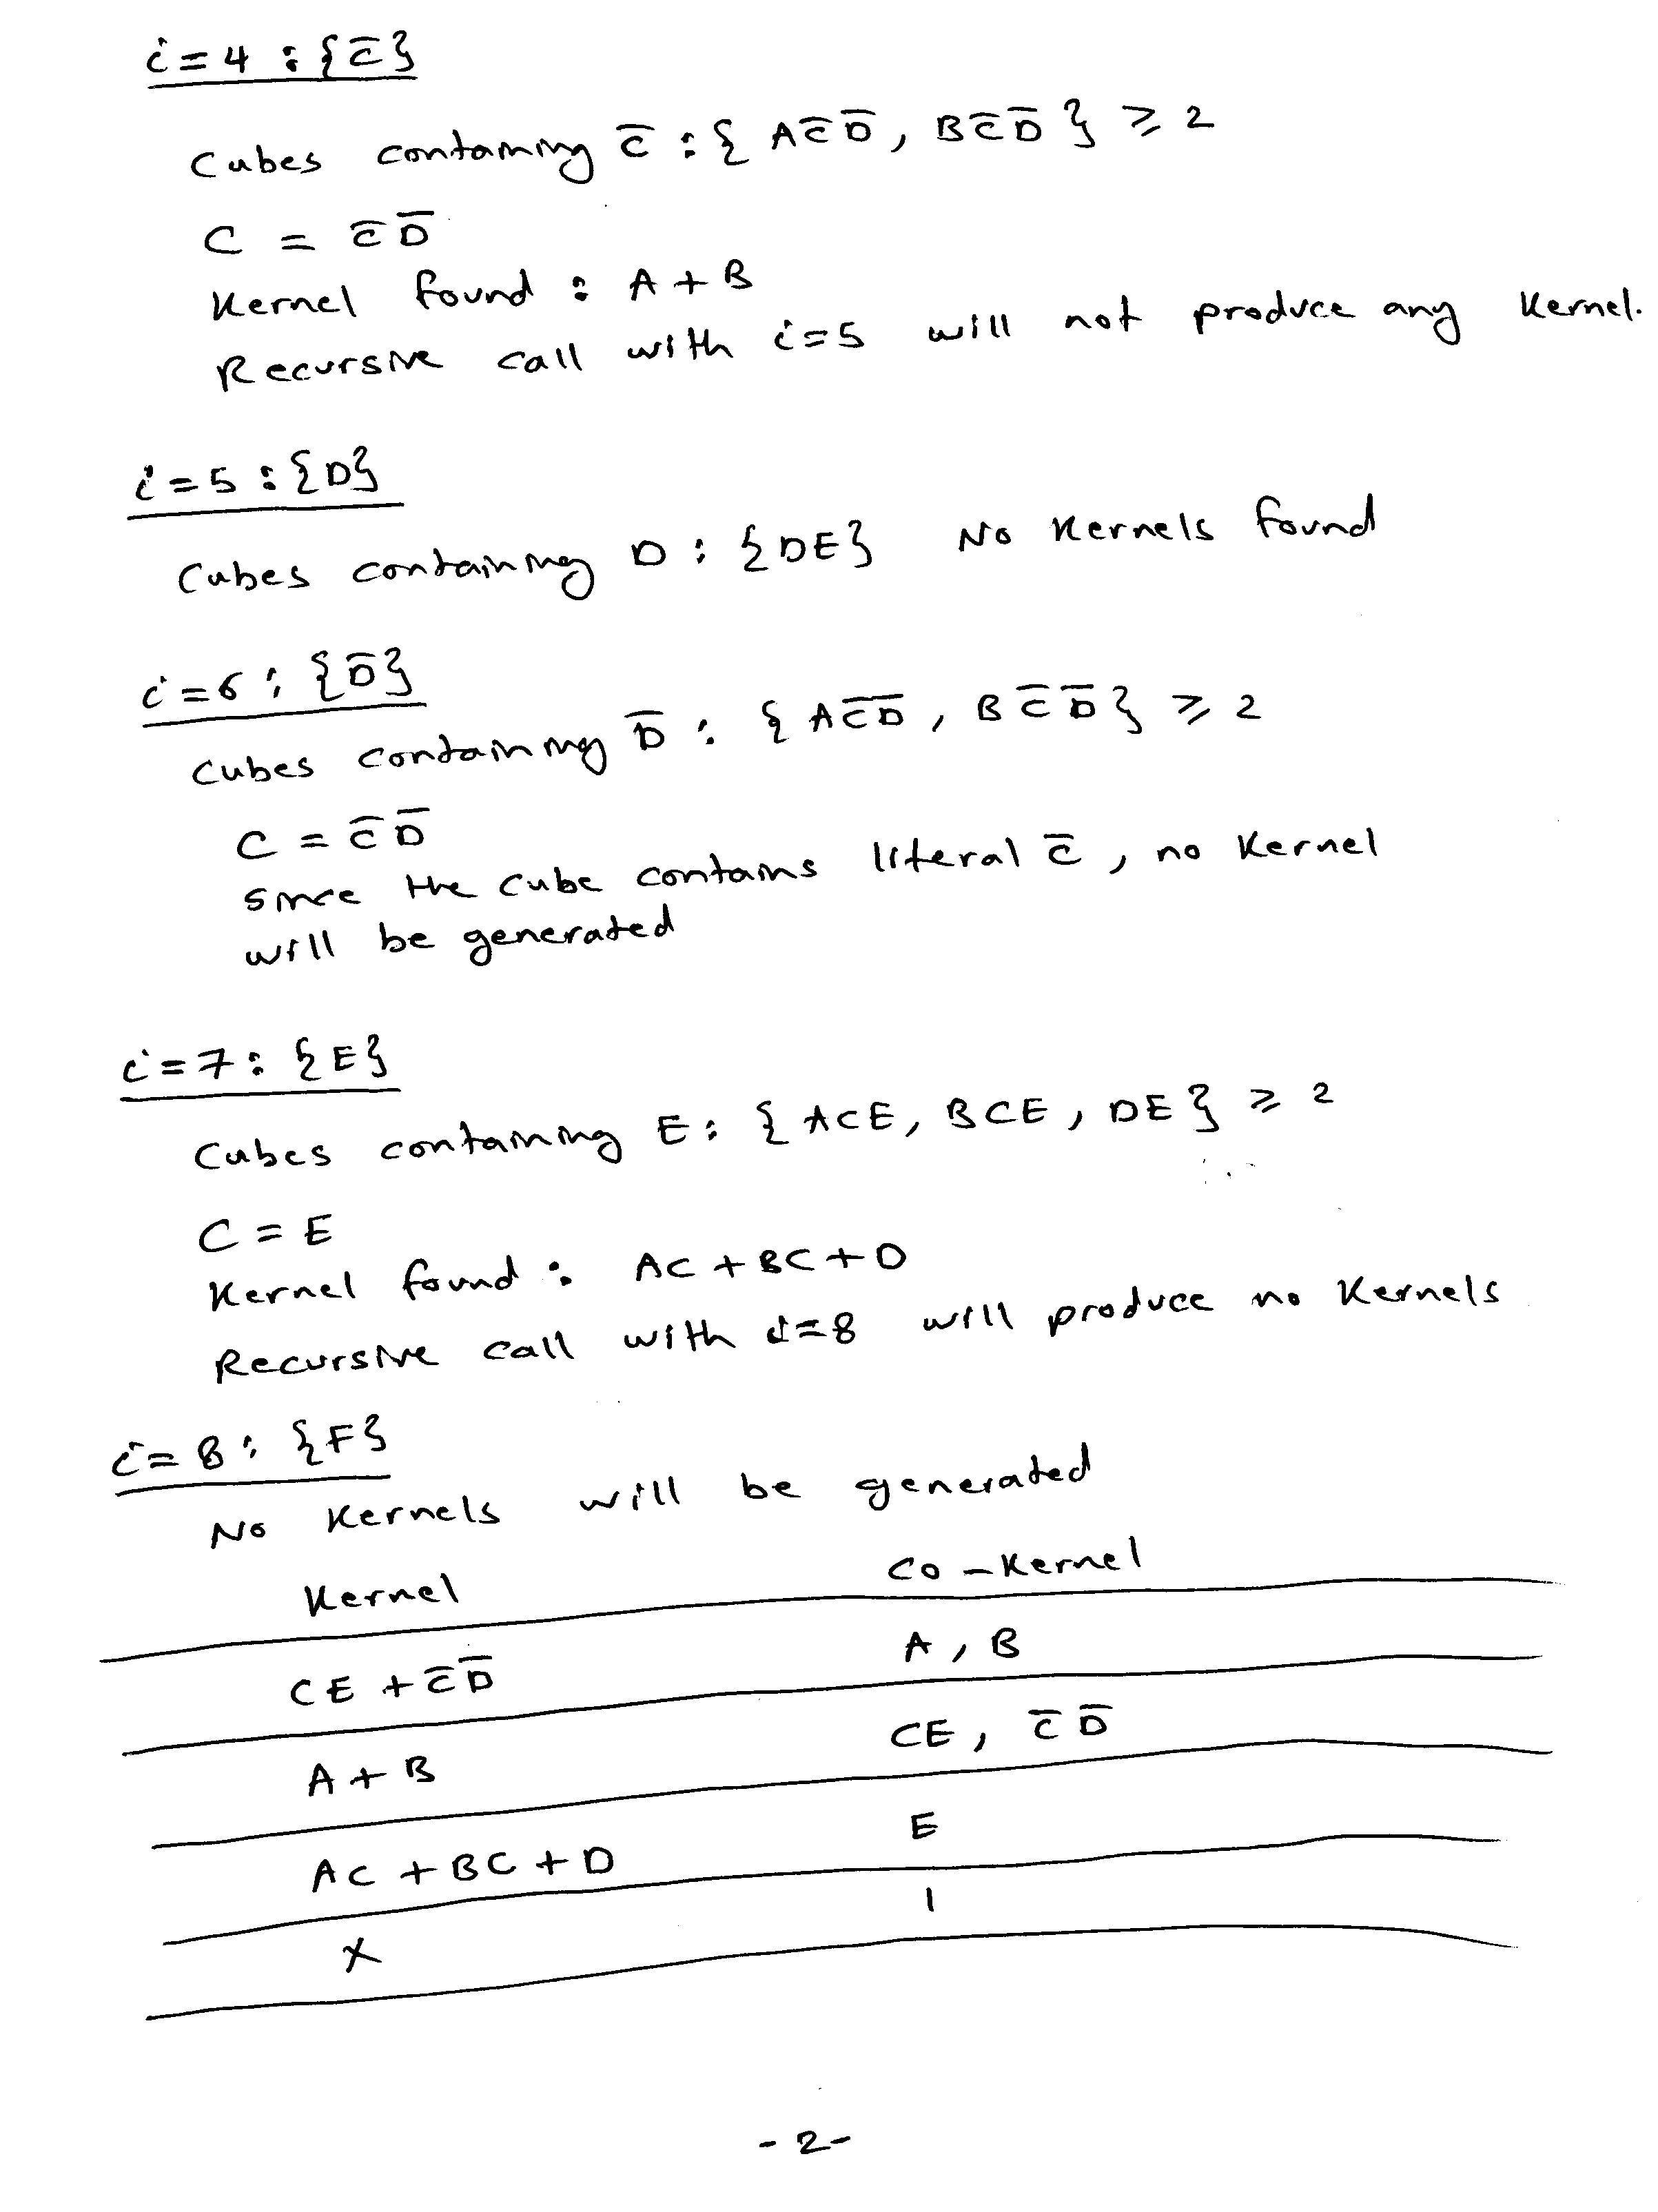 i=4 : {C̅}
Cubes containing C̅ : { AC̅D̅ , BC̅D̅ } ⩾ 2
C = C̅ D̅
Kernel found : A + B
Recursive call with i=5 will not produce any kernel.
i=5 : {D}
Cubes containing D : {DE} No kernels found
i=6 : {D̅}
Cubes containing D̅ : { AC̅D̅ , BC̅D̅ } ⩾ 2
C = C̅ D̅
Since the cube contains literal C̅ , no kernel
will be generated
i=7 : {E}
Cubes containing E : { ACE, BCE, DE } ⩾ 2
C = E
Kernel found : AC + BC + D
Recursive call with i=8 will produce no kernels
i=8 : {F}
No kernels will be generated
Kernel Co-Kernel
CE + C̅D̅ A , B
A + B CE , C̅ D̅
AC + BC + D E
X 1
-2-